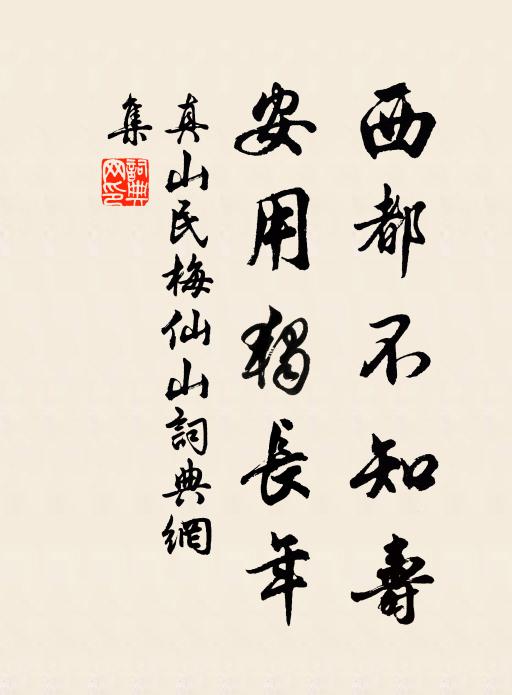 西都不知壽
安用獨長年
真山民梅仙山詞典網
集
詞典
网印